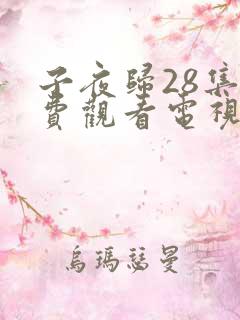 子夜歸28集
費觀看電視
烏瑪瑟曼